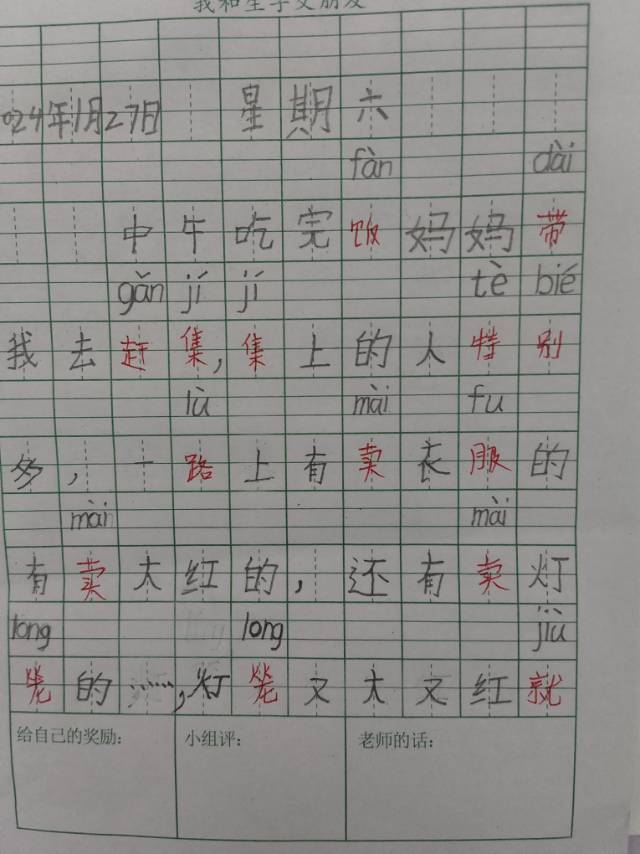 我和生字交朋友
024年1月27日 星期六
fàn dài
中午吃完饭妈妈带
gǎn jí jí tè bié
我去赶集,集上的人特别
lù mài fu
多,一路上有卖衣服的
mài mài
有卖大红的,还有卖灯
long long jiù
笼的……,灯笼又大又红就
给自己的奖励: 小组评: 老师的话: